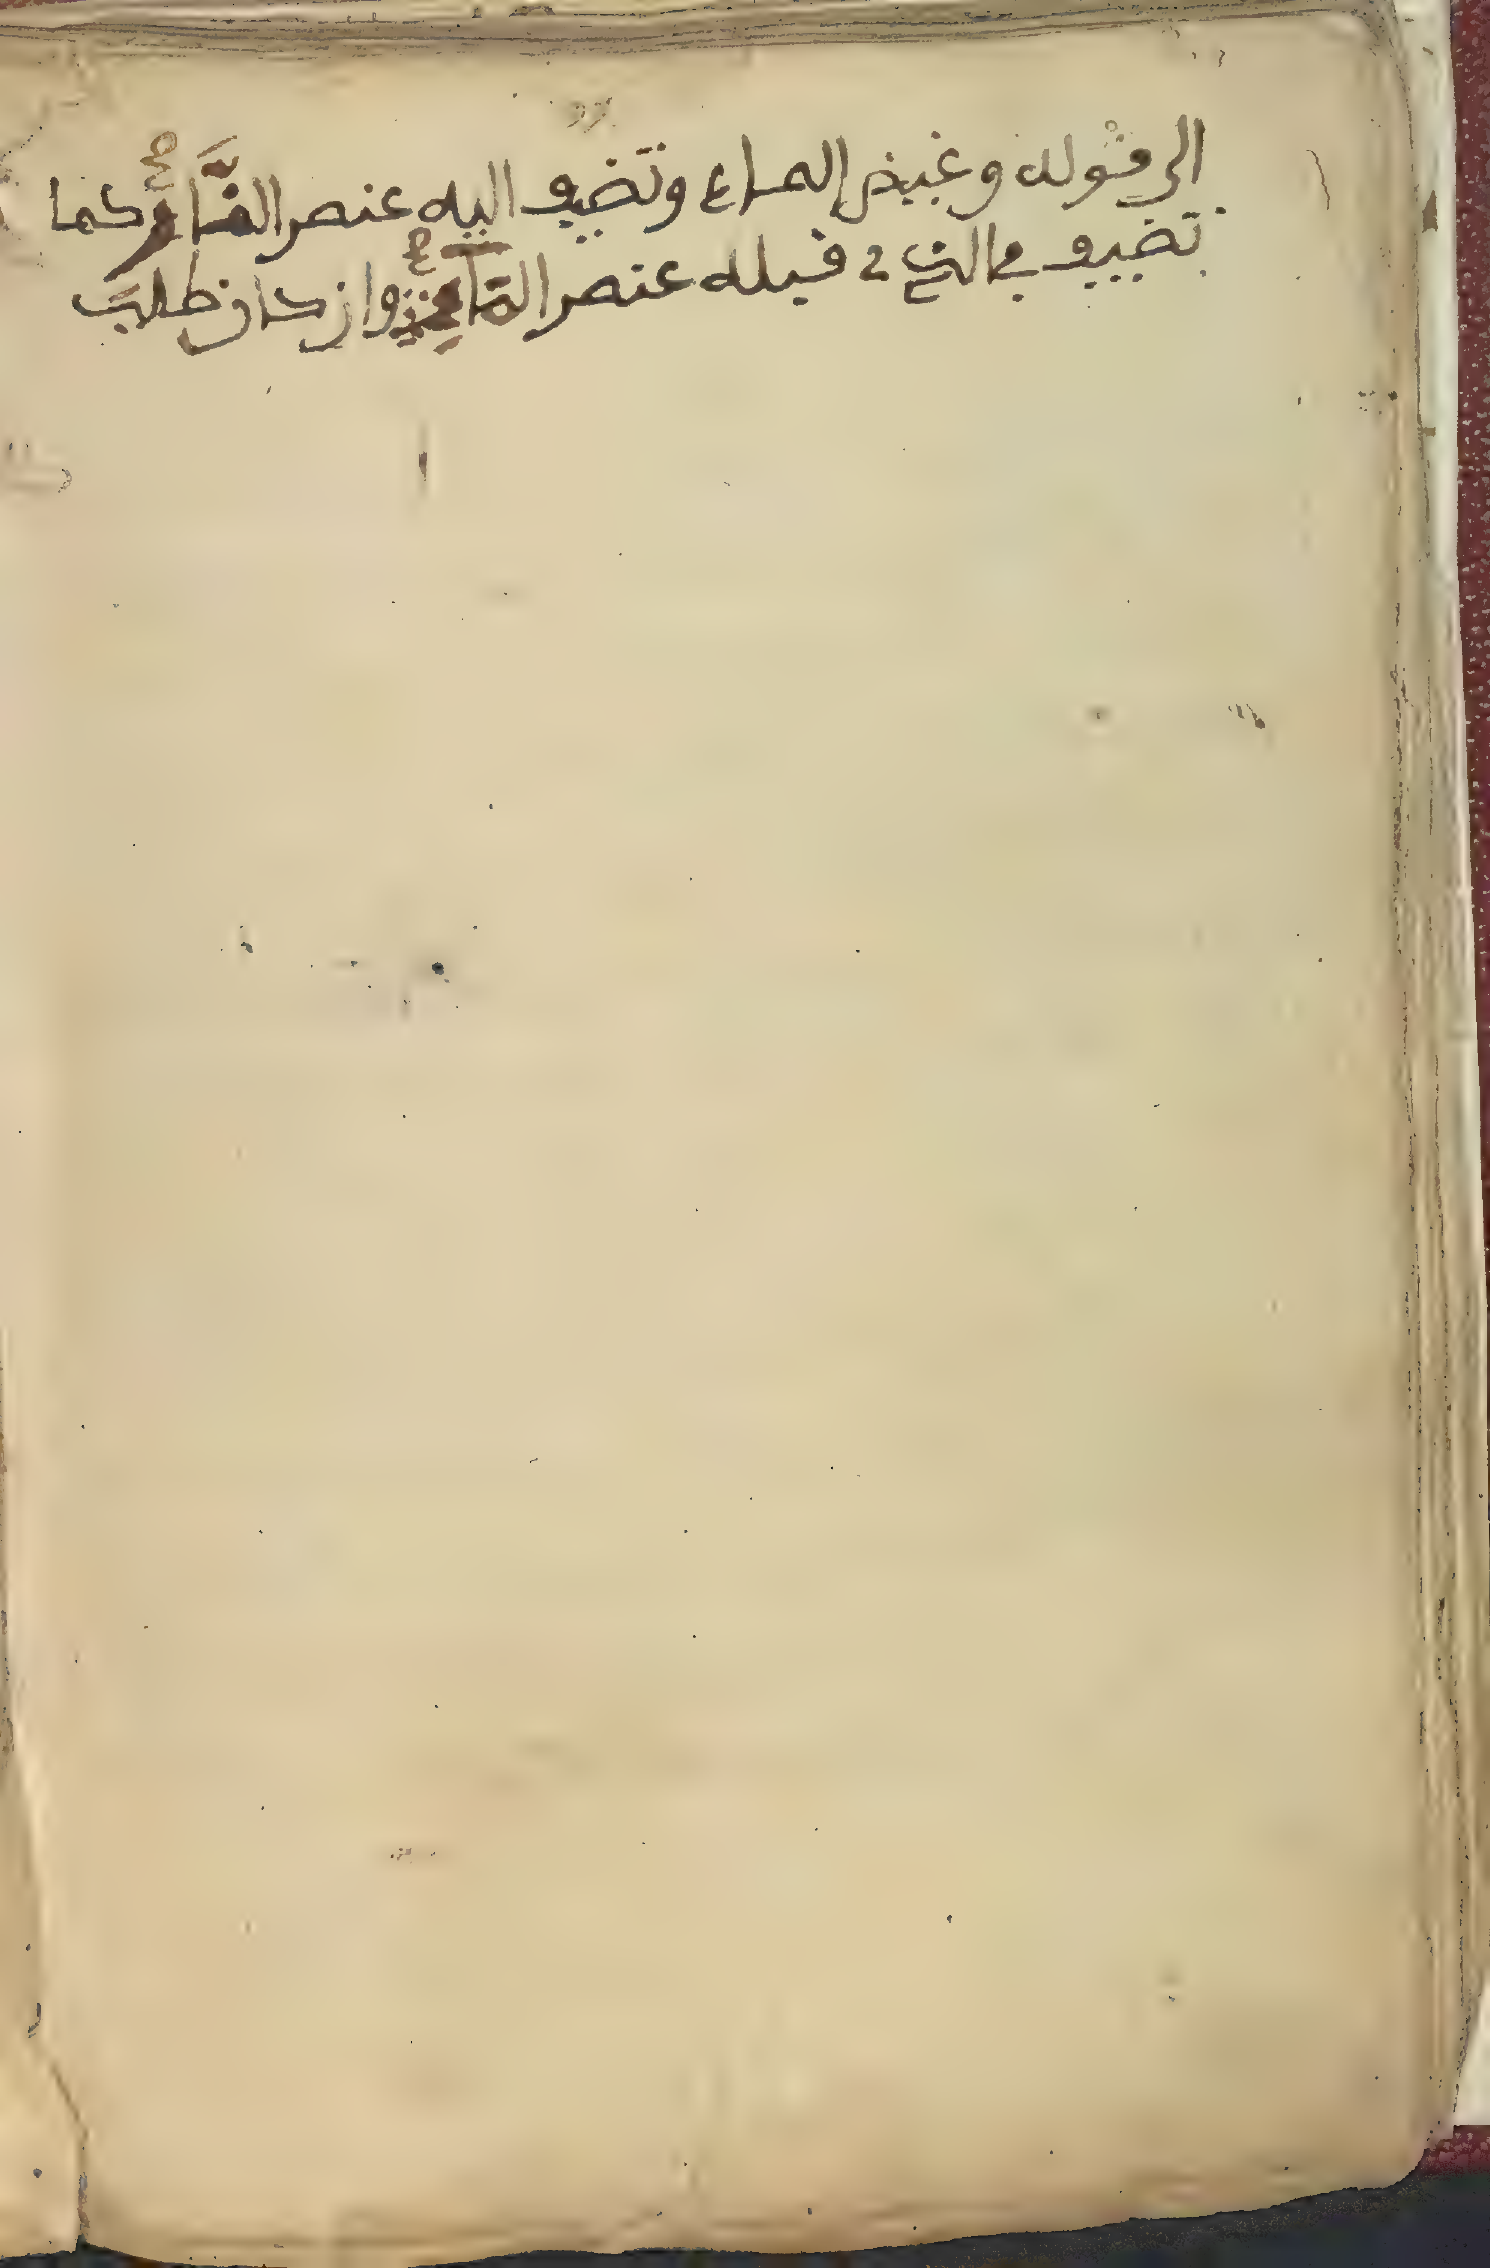 الى قوله وغيض الماء وتضيف اليه عنصر الفاء كما
تضيف في الذي قبله عنصر التاء وان كان طلب